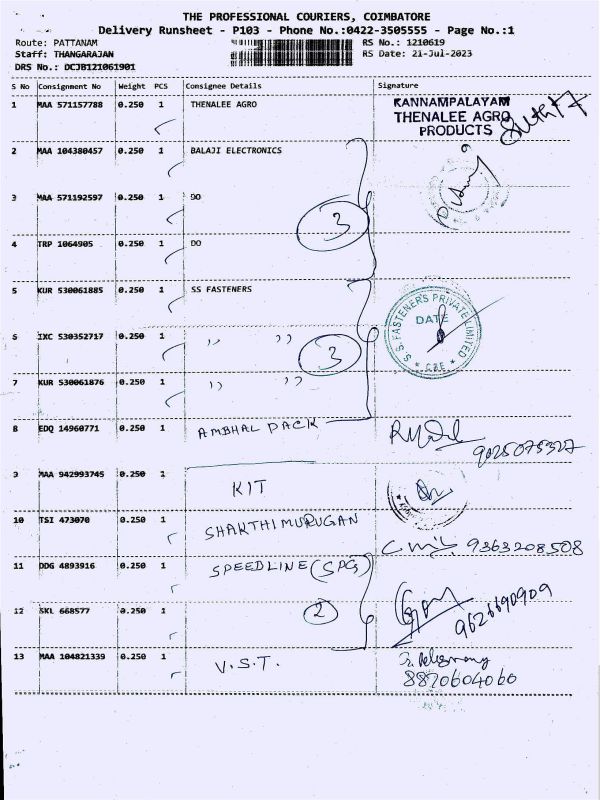 THE PROFESSIONAL COURIERS, COIMBATORE
Delivery Runsheet - P103 - Phone No.:0422-3505555 - Page No.:1
Route: PATTANAM RS No.: 1210619
Staff: THANGARAJAN RS Date: 21-Jul-2023
DRS No.: DCJB121061901
S No Consignment No Weight PCS Consignee Details Signature
1 MAA 571157788 0.250 1 THENALEE AGRO KANNAMPALAYAM
THENALEE AGRO
PRODUCTS
2 MAA 104380457 0.250 1 BALAJI ELECTRONICS
3 MAA 571192597 0.250 1 DO
3
4 TRP 1064905 0.250 1 DO
5 KUR 530061885 0.250 1 SS FASTENERS
S.S. FASTENERS PRIVATE LIMITED
DATE
* CBE *
6 IXC 530352717 0.250 1 ,, ,,
3
7 KUR 530061876 0.250 1 ,, ,,
8 EDQ 14960771 0.250 1 AMBHAL PACK
9025075327
9 MAA 942993745 0.250 1 KIT
10 TSI 473070 0.250 1 SHAKTHIMURUGAN
9363208508
11 DDG 4893916 0.250 1 SPEEDLINE (SPG)
12 SKL 668577 0.250 1 2 9626690909
13 MAA 104821339 0.250 1 V.S.T.
8870604060